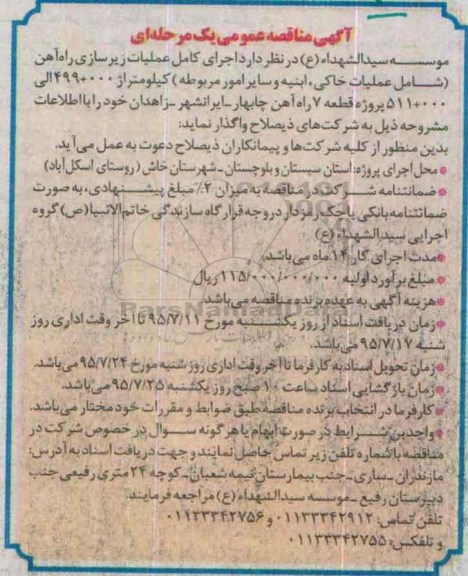 آگهی مناقصه عمومی یک مرحله‌ای
موسسه سیدالشهداء (ع) در نظر دارد اجرای کامل عملیات زیرسازی راه‌آهن
(شامل عملیات خاکی، ابنیه و سایر امور مربوطه) کیلومتراژ ۴۹۹+۰۰۰ الی
۵۱۱+۰۰۰ پروژه قطعه ۷ راه آهن چابهار ـ ایرانشهر ـ زاهدان خود را با اطلاعات
مشروحه ذیل به شرکت‌های ذیصلاح واگذار نماید:
بدین منظور از کلیه شرکت‌ها و پیمانکاران ذیصلاح دعوت به عمل می‌آید.
* محل اجرای پروژه: استان سیستان و بلوچستان ـ شهرستان خاش (روستای اسکل‌آباد)
* ضمانتنامه شرکت در مناقصه به میزان ۲٪ مبلغ پیشنهادی، به صورت
ضمانتنامه بانکی یا چک رمزدار در وجه قرارگاه سازندگی خاتم‌الانبیا (ص) گروه
اجرایی سیدالشهداء (ع)
* مدت اجرای کار ۱۴ ماه می‌باشد.
* مبلغ برآورد اولیه ۱۱۵/۰۰۰/۰۰۰/۰۰۰ ریال
* هزینه آگهی به عهده برنده مناقصه می‌باشد.
* زمان دریافت اسناد از روز یکشنبه مورخ ۹۵/۷/۱۱ تا آخر وقت اداری روز
شنبه ۹۵/۷/۱۷ می‌باشد.
* زمان تحویل اسناد به کارفرما تا آخر وقت اداری روز شنبه مورخ ۹۵/۷/۲۴ می‌باشد.
* زمان بازگشایی اسناد ساعت ۱۰ صبح روز یکشنبه ۹۵/۷/۲۵ می‌باشد.
* کارفرما در انتخاب برنده مناقصه طبق ضوابط و مقررات خود مختار می‌باشد.
* واجدین شرایط در صورت ابهام یا هر گونه سوال در خصوص شرکت در
مناقصه با شماره تلفن زیر تماس حاصل نمایند و جهت دریافت اسناد به آدرس:
مازندران ـ ساری ـ جنب بیمارستان نیمه شعبان ـ کوچه ۲۴ متری رفیعی جنب
دبیرستان رفیع ـ موسسه سیدالشهداء (ع) مراجعه فرمایند.
تلفن تماس: ۰۱۱۳۳۳۴۲۹۱۲ و ۰۱۱۳۳۳۴۲۷۵۶
و تلفکس: ۰۱۱۳۳۳۴۲۷۵۵